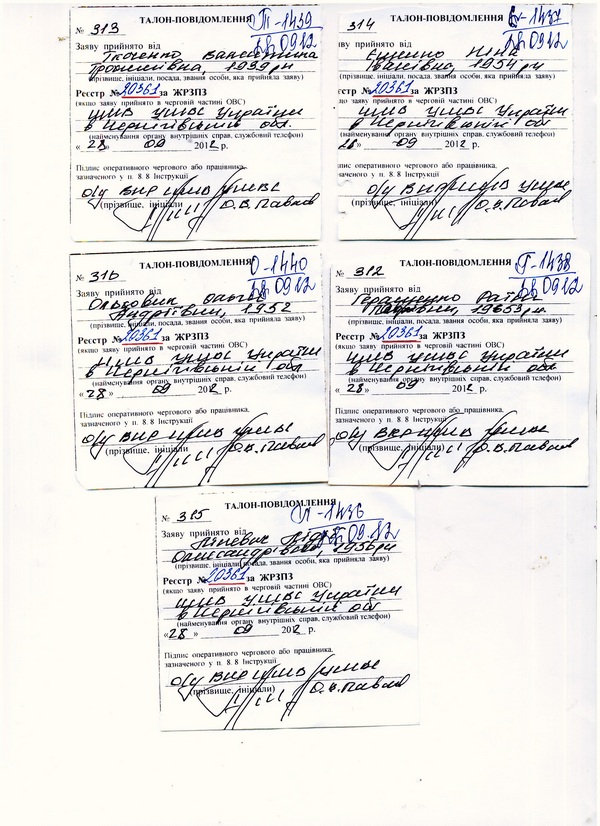 ТАЛОН-ПОВІДОМЛЕННЯ
№ 313
П-1439
28.09.12
Заяву прийнято від
Ткаченко Валентина
1939 рн
(прізвище, ініціали, посада, звання особи, яка прийняла заяву)
Реєстр № 20361 за ЖРЗПЗ
(якщо заяву прийнято в черговій частині ОВС)
УМВС України
в Чернігівській обл.
(найменування органу внутрішніх справ, службовий телефон)
« 28 » 09 2012 р.
Підпис оперативного чергового або працівника,
зазначеного у п. 8.8 Інструкції
о/у
(прізвище, ініціали
О.В. Павлов
ТАЛОН-ПОВІДОМЛЕННЯ
314
1437
28.09.12
ву прийнято від
Ніна
1954 рн
(прізвище, ініціали, посада, звання особи, яка прийняла заяву)
Реєстр № 20361 за ЖРЗПЗ
що заяву прийнято в черговій частині ОВС)
УМВС України
в Чернігівській обл
(найменування органу внутрішніх справ, службовий телефон)
28 » 09 2012 р.
пис оперативного чергового або працівника,
аченого у п. 8.8 Інструкції
о/у
(прізвище, ініціали)
О.В. Павлов
ТАЛОН-ПОВІДОМЛЕННЯ
№ 316
О-1440
28.09.12
Заяву прийнято від
Ольховик
Андріївна, 1952
(прізвище, ініціали, посада, звання особи, яка прийняла заяву)
Реєстр № 20361 за ЖРЗПЗ
(якщо заяву прийнято в черговій частині ОВС)
УМВС України
в Чернігівській обл
(найменування органу внутрішніх справ, службовий телефон)
« 28 » 09 2012 р.
Підпис оперативного чергового або працівника,
зазначеного у п. 8.8 Інструкції
о/у
(прізвище, ініціали
О.В. Павлов
ТАЛОН-ПОВІДОМЛЕННЯ
№ 312
Г-1438
28.09.12
Заяву прийнято від
Геращенко
(прізвище, ініціали, посада, звання особи, яка прийняла заяву)
Реєстр № 20361 за ЖРЗПЗ
(якщо заяву прийнято в черговій частині ОВС)
УМВС України
в Чернігівській обл
(найменування органу внутрішніх справ, службовий телефон)
« 28 » 09 2012 р.
Підпис оперативного чергового або працівника,
зазначеного у п. 8.8 Інструкції
о/у
(прізвище, ініціали)
О.В. Павлов
ТАЛОН-ПОВІДОМЛЕННЯ
№ 315
1436
28.09.12
Заяву прийнято від
Олександрівна, 1956 рн
(прізвище, ініціали, посада, звання особи, яка прийняла заяву)
Реєстр № 20361 за ЖРЗПЗ
(якщо заяву прийнято в черговій частині ОВС)
УМВС України
в Чернігівській обл
(найменування органу внутрішніх справ, службовий телефон)
« 28 » 09 2012 р.
Підпис оперативного чергового або працівника,
зазначеного у п. 8.8 Інструкції
о/у
(прізвище, ініціали)
О.В. Павлов